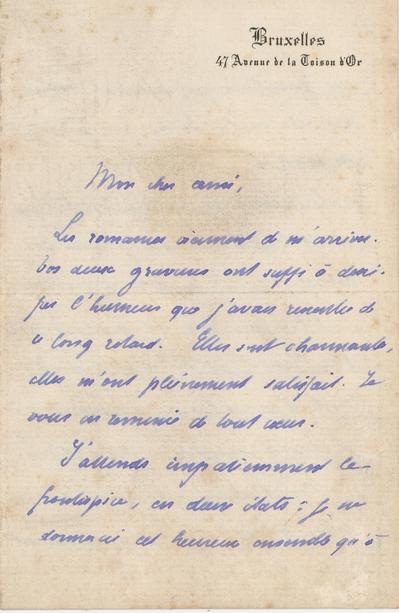 Bruxelles
47 Avenue de la Toison d'Or
Mon cher ami,
Les romances viennent de m'arriver.
Vos deux gravures ont suffi à dissi-
per l'humeur que j'avais ressentie de
ce long retard. Elles sont charmantes,
elles m'ont pleinement satisfait. Je
vous en remercie de tout cœur.
J'attends impatiemment le
frontispice, en deux états ; je ne
donnerai cet heureux ensemble qu'à